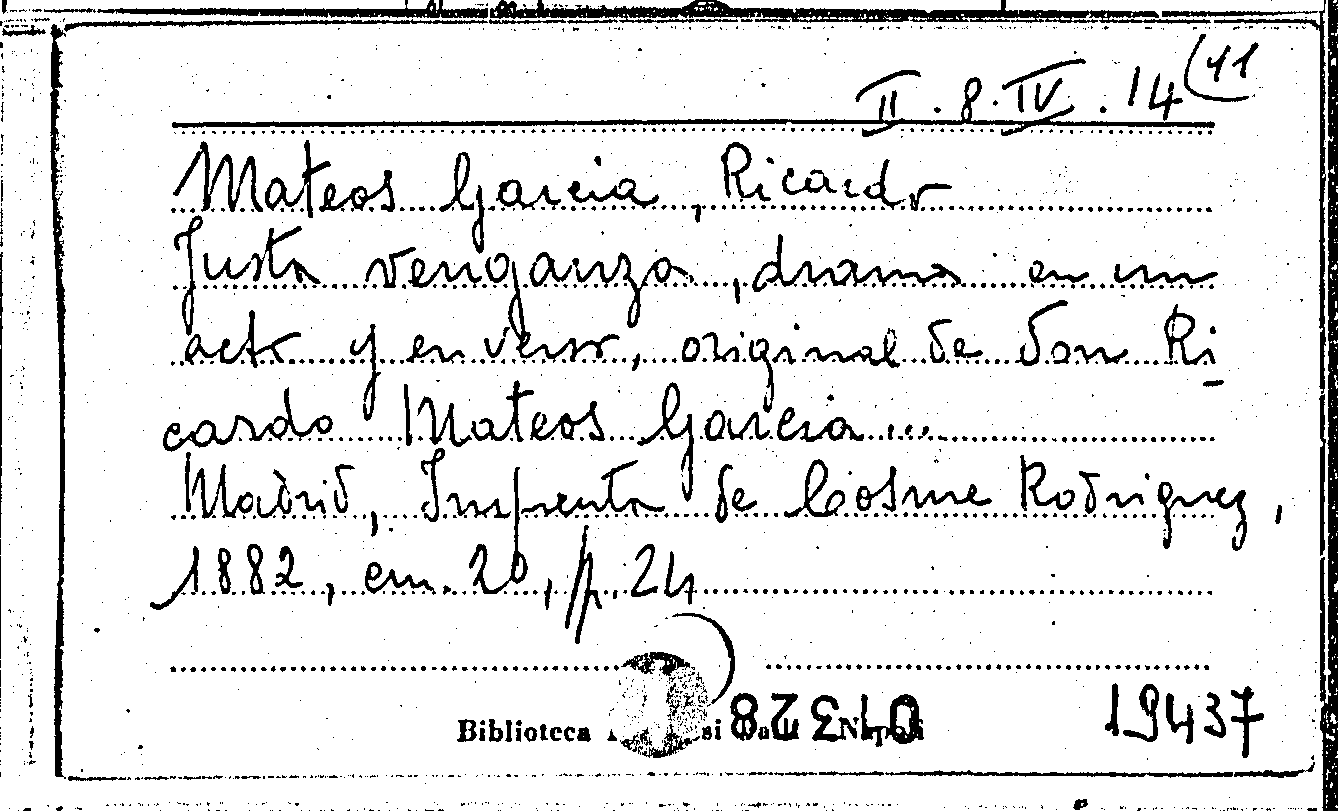 II . 8 . IV . 14 (11
Mateos Garcia, Ricardo
Justa venganza, drama en un
acto y en verso, original de don Ri
cardo Mateos Garcia ...
Madrid, Imprenta de Cosme Rodriguez,
1882, cm. 20, p. 24
Biblioteca
19437